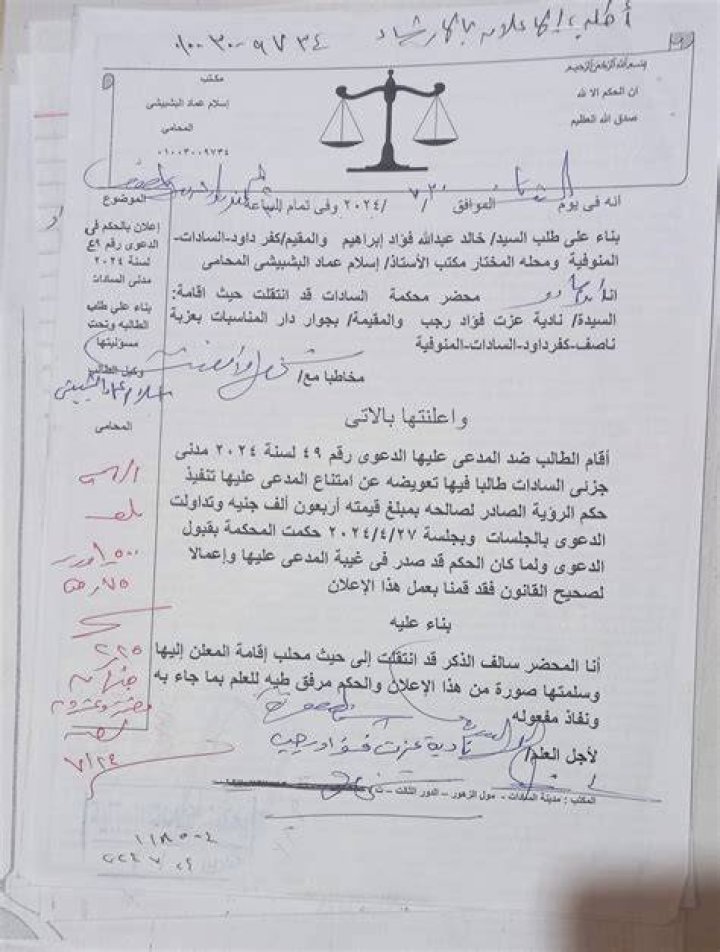 أطلب الإعلان بالإرشاد
٠١٠٠٣٠٠٩٧٣٤
بسم الله الرحمن الرحيم
ان الحكم الا لله
صدق الله العظيم
مكتب
إسلام عماد البشبيشى
المحامى
٠١٠٠٣٠٠٩٧٣٤
انه فى يوم الموافق ٧/٣٠ /٢٠٢٤ وفى تمام الساعة
بناء على طلب السيد/ خالد عبدالله فؤاد إبراهيم والمقيم/كفر داود-السادات-
المنوفية ومحله المختار مكتب الأستاذ/ إسلام عماد البشبيشى المحامى
انا محضر محكمة السادات قد انتقلت حيث اقامة:
السيدة/ نادية عزت فؤاد رجب والمقيمة/ بجوار دار المناسبات بعزبة
ناصف-كفرداود-السادات-المنوفية
مخاطبا مع/
واعلنتها بالاتى
أقام الطالب ضد المدعى عليها الدعوى رقم ٤٩ لسنة ٢٠٢٤ مدنى
جزئى السادات طالبا فيها تعويضه عن امتناع المدعى عليها تنفيذ
حكم الرؤية الصادر لصالحه بمبلغ قيمته أربعون ألف جنيه وتداولت
الدعوى بالجلسات وبجلسة ٢٠٢٤/٤/٢٧ حكمت المحكمة بقبول
الدعوى ولما كان الحكم قد صدر فى غيبة المدعى عليها وإعمالا
لصحيح القانون فقد قمنا بعمل هذا الإعلان
بناء عليه
أنا المحضر سالف الذكر قد انتقلت إلى حيث محلب إقامة المعلن إليها
وسلمتها صورة من هذا الإعلان والحكم مرفق طيه للعلم بما جاء به
ونفاذ مفعوله
لأجل العلم/
نادية عزت فؤاد رجب
المكتب : مدينة السادات - مول الزهور - الدور الثالث -
الموضوع
إعلان بالحكم فى
الدعوى رقم ٤٩
لسنة ٢٠٢٤
مدنى السادات
بناء على طلب
الطالبه وتحت
مسؤليتها
وكيل الطالب
إسلام عماد البشبيشى
المحامى
٧/٢٤